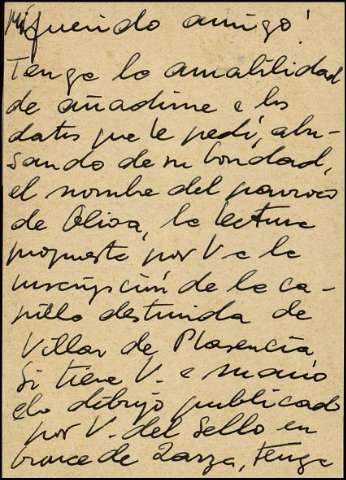 Mi querido amigo!
Tenga la amabilidad
de añadirme a los
datos que le pedí, abu-
sando de su bondad,
el nombre del párroco
de Oliva, la lectura
propuesta por V a la
inscripción de la ca-
pilla destruida de
Villar de Plasencia
Si tiene V. a mano
el dibujo publicado
por V. del Sello en
bronce de Zarza, tenga